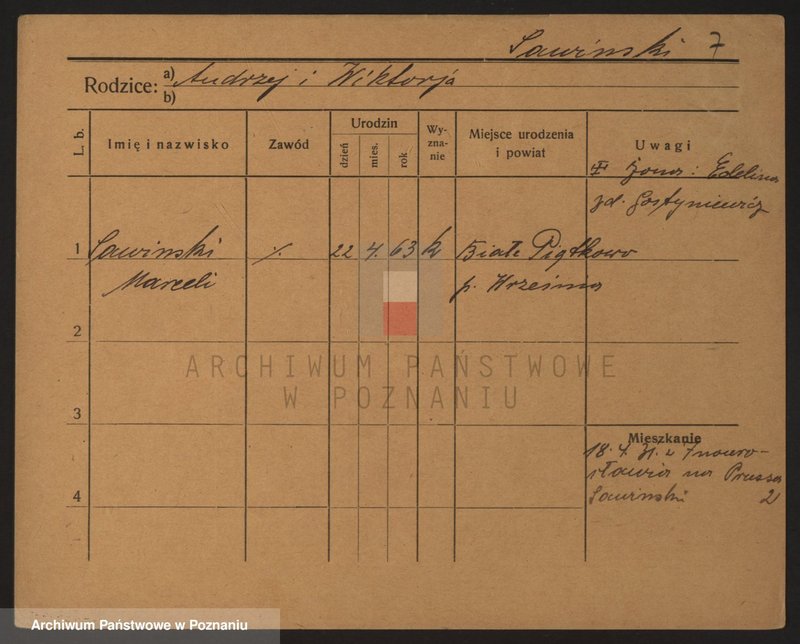 Sawinski 7
Rodzice: a) Andrzej i Wiktorja
b)
L. b.
Imię i nazwisko
Zawód
Urodzin
dzień
mies.
rok
Wy-
zna-
nie
Miejsce urodzenia
i powiat
Uwagi
żona: Edelina
zd. Gostyniewicz
1 Sawinski ./. 22 4. 63 k Białe Piątkowo
Marceli p. Września
2
3
4
Mieszkanie
18. 4. 31. z Inowro-
sławia na Prusa
Sawinski 2
ARCHIWUM PAŃSTWOWE
W POZNANIU
Archiwum Państwowe w Poznaniu